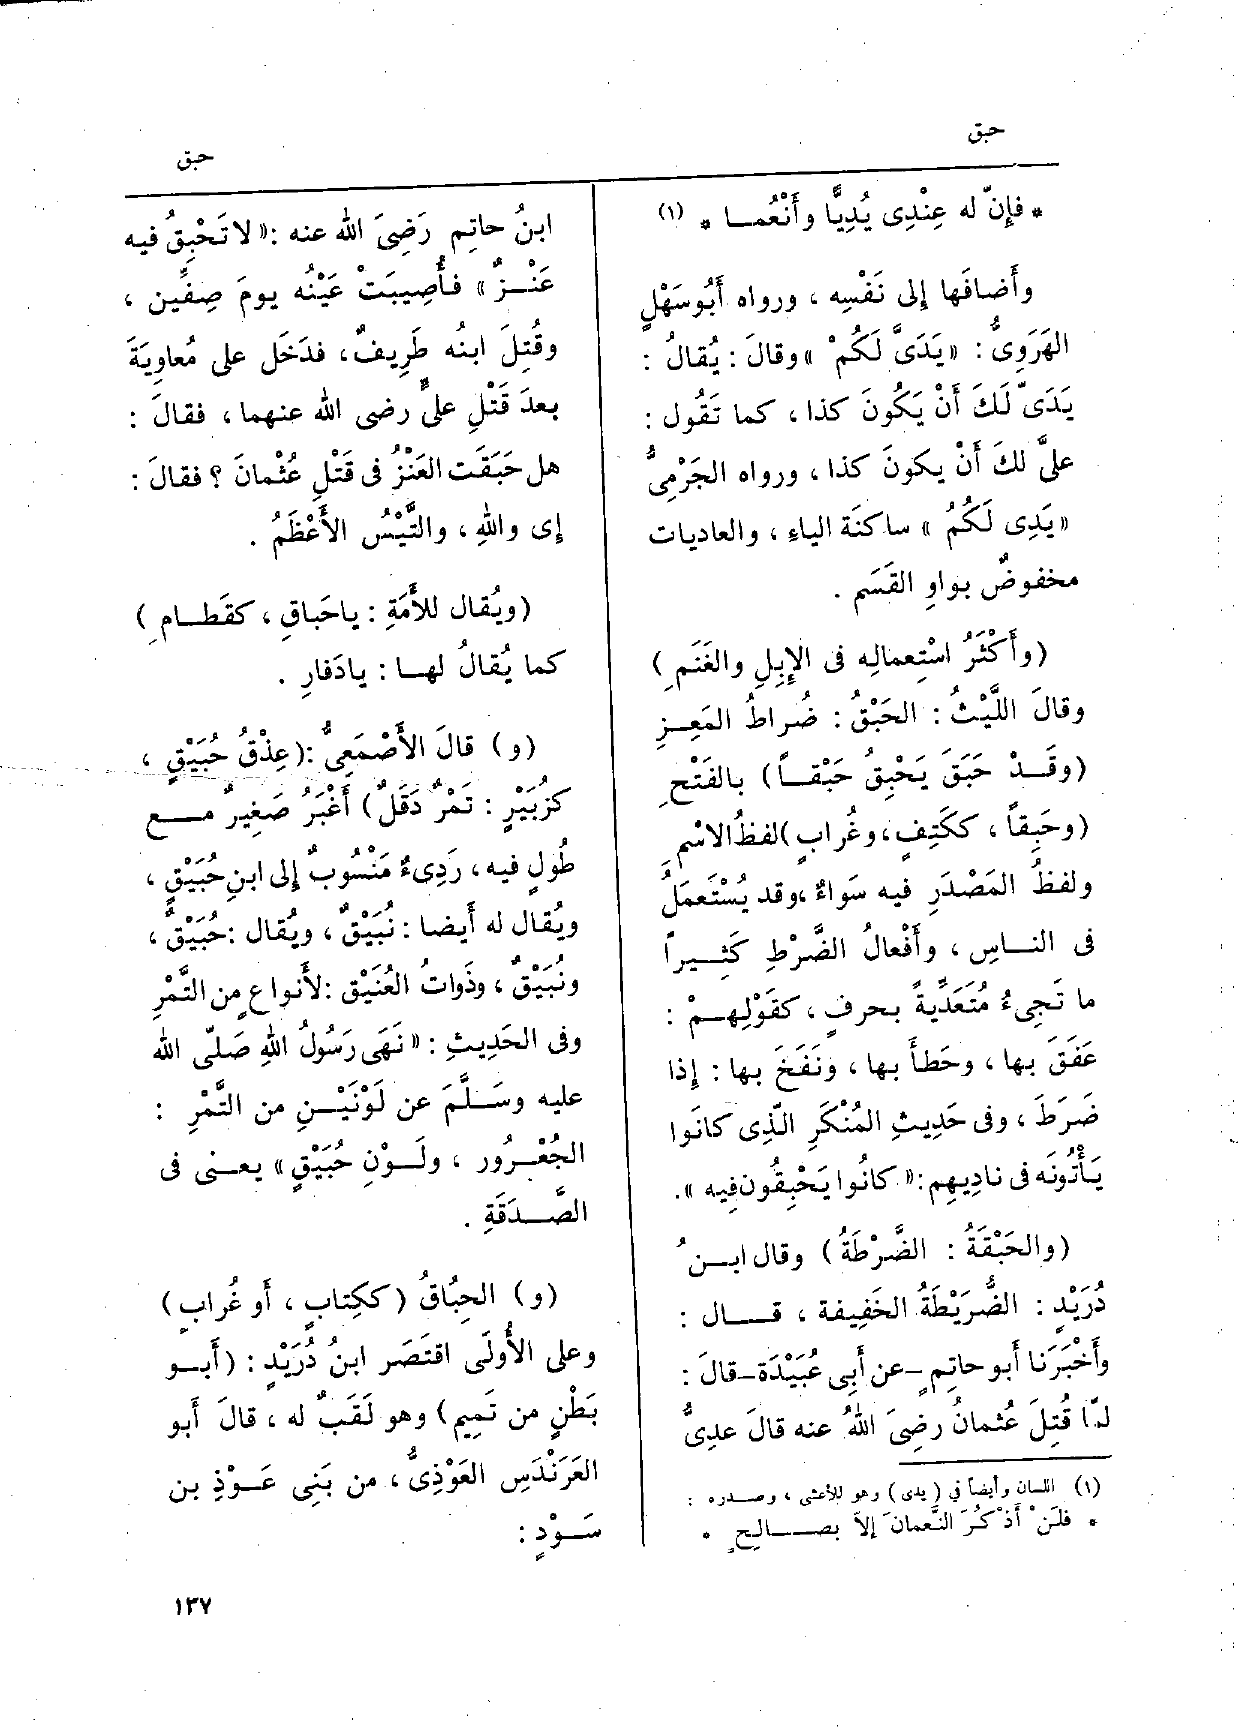 حبق
حبق
* فإنّ له عِنْدِى يُدِيًّا وأَنْعُمـا * (١)
وأَضافَها إلى نَفْسِه ، ورواه أَبُو سَهْلٍ
الهَرَوِىُّ : « يَدَىَّ لَكُمْ » وقالَ : يُقالُ :
يَدَىّ لَكَ أَنْ يَكُونَ كذا ، كما تَقُول :
علىَّ لكَ أَنْ يكونَ كذا ، ورواه الجَرْمِىُّ
« يَدِى لَكُمُ » ساكنَة الياءِ ، والعاديات
مخفوضٌ بواوِ القَسَم .
( وأَكْثَرُ اسْتِعمالِه فى الإِبِلِ والغَنَمِ )
وقالَ اللَّيْثُ : الحَبْقُ : ضُراطُ المَعِـزِ
( وقَـدْ حَبَقَ يَحْبِقُ حَبْقـاً ) بالفَتْحِ
( وحَبِقاً ، ككَتِفٍ ، وغُرابٍ ) لفظُ الاسْمِ
ولفظُ المَصْدَرِ فيه سَواءٌ ، وقد يُسْتَعمَلُ
فى النـاسِ ، وأَفْعالُ الضَّرْطِ كَثِـيراً
ما تَجِىءُ مُتَعَدِّيةً بحرفٍ ، كقَوْلِهـمْ :
عَفَقَ بها ، وحَطأَ بها ، ونَفَخَ بها : إِذا
ضَرَطَ ، وفى حَدِيثِ المُنْكَرِ الَّذِى كانَوا
يَأْتُونَه فى نادِيهِم : « كانُوا يَحْبِقُون فِيه » .
( والحَبْقَةُ : الضَّرْطَةُ ) وقال ابـنُ
دُرَيْدٍ : الضُّرَيْطَةُ الخَفِيفة ، قـال :
وأَخْبَرَنا أَبو حاتِمٍ - عن أَبِى عُبَيْدَة - قالَ :
لمّا قُتِلَ عُثمانُ رضِىَ اللهُ عنه قالَ عدِىُّ
(١) اللسان وأيضاً فى ( يدى ) وهو للأعشى ، وصـدره :
* فلَنْ أَذْكُرَ النَّعمانَ إلاّ بصـالحٍ *
ابنُ حاتِم رَضِىَ اللهُ عنه : « لا تَحْبِقُ فيه
عَنْـزٌ » فأُصِيبَتْ عَيْنُه يومَ صِفِّين ،
وقُتِلَ ابنُه طَرِيفٌ ، فدَخَل على مُعاوِيَةَ
بعدَ قَتْلِ علىٍّ رضى الله عنهما ، فقالَ :
هل حَبَقَت العَنْزُ فى قَتْلِ عُثْمانَ ؟ فقالَ :
إى واللهِ ، والتَّيْسُ الأَعْظَمُ .
( ويُقال للأَمَةِ : ياحَباقِ ، كقَطـامِ )
كما يُقالُ لهـا : يادَفارِ .
( و ) قالَ الأَصْمَعِىُّ : ( عِذْقُ حُبَيْقٍ ،
كزُبَيْرٍ : تَمْرٌ دَقَلٌ ) أَغْبَرُ صَغِيرٌ مـع
طُولٍ فيه ، رَدِىءٌ مَنْسُوبٌ إلى ابنِ حُبَيْقٍ ،
ويُقال له أَيضا : نُبَيْقٌ ، ويُقال : حُبَيْقٌ ،
ونُبَيْقٌ ، وذَواتُ العُنَيْق : لأَنواعٍ من التَّمْرِ
وفى الحَدِيثِ : « نَهَى رَسُولُ اللهِ صَلّى الله
عليه وسَـلَّمَ عن لَوْنَيْـنِ من التَّمْرِ :
الجُعْـرُور ، ولَـوْنِ حُبَيْقٍ » يعـنى فى
الصَّـدَقَةِ .
( و ) الحِبّاقُ ( ككِتابٍ ، أَو غُرابٍ )
وعلى الأُولَى اقتَصَر ابنُ دُرَيْدٍ : ( أَبـو
بَطْنٍ من تَمِيم ) وهو لَقَبٌ له ، قالَ أَبو
العَرَنْدَسِ العَوْذِىُّ ، من بَنِى عَـوْذِ بن
سَـوْدٍ :
١٣٧